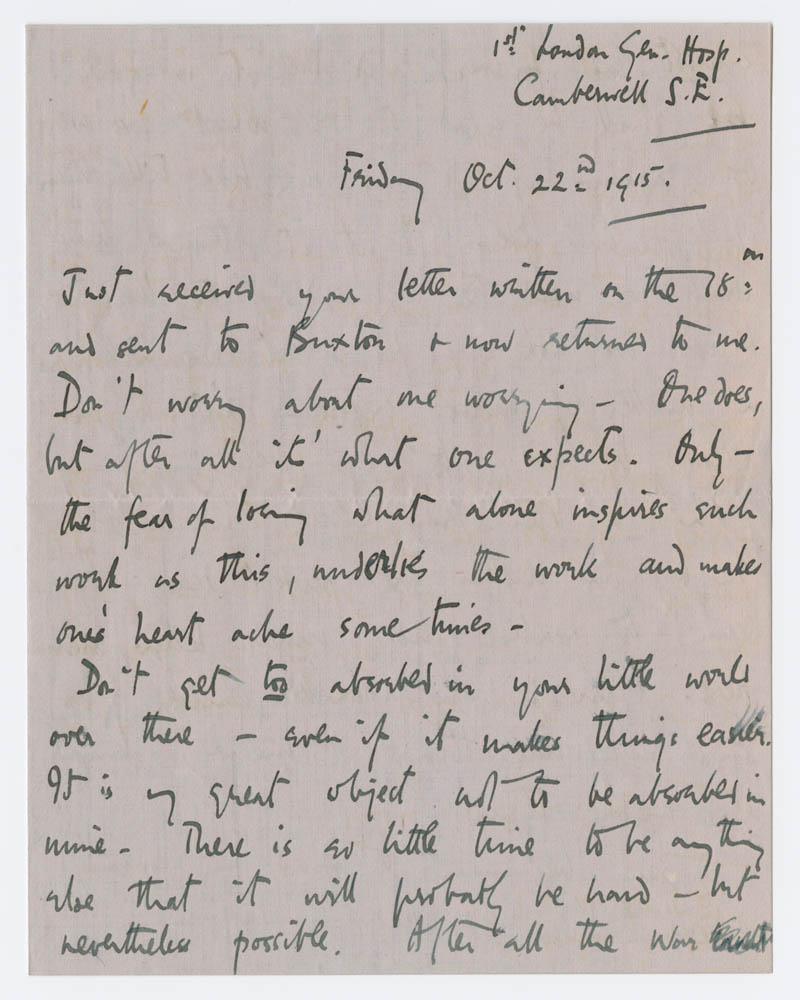 1st London Gen. Hosp.
Camberwell S.E.
Friday Oct. 22nd 1915.
Just received your letter written on the 18th
and sent to Buxton & now returned to me.
Don't worry about me worrying – One does,
but after all it's what one expects. Only –
the fear of losing what alone inspires such
work as this, underlies the work and makes
one's heart ache sometimes –
Don't get too absorbed in your little world
over there – even if it makes things easier.
It is my great object not to be absorbed in
mine – There is so little time to be anything
else that it will probably be hard – but
nevertheless possible. After all the War